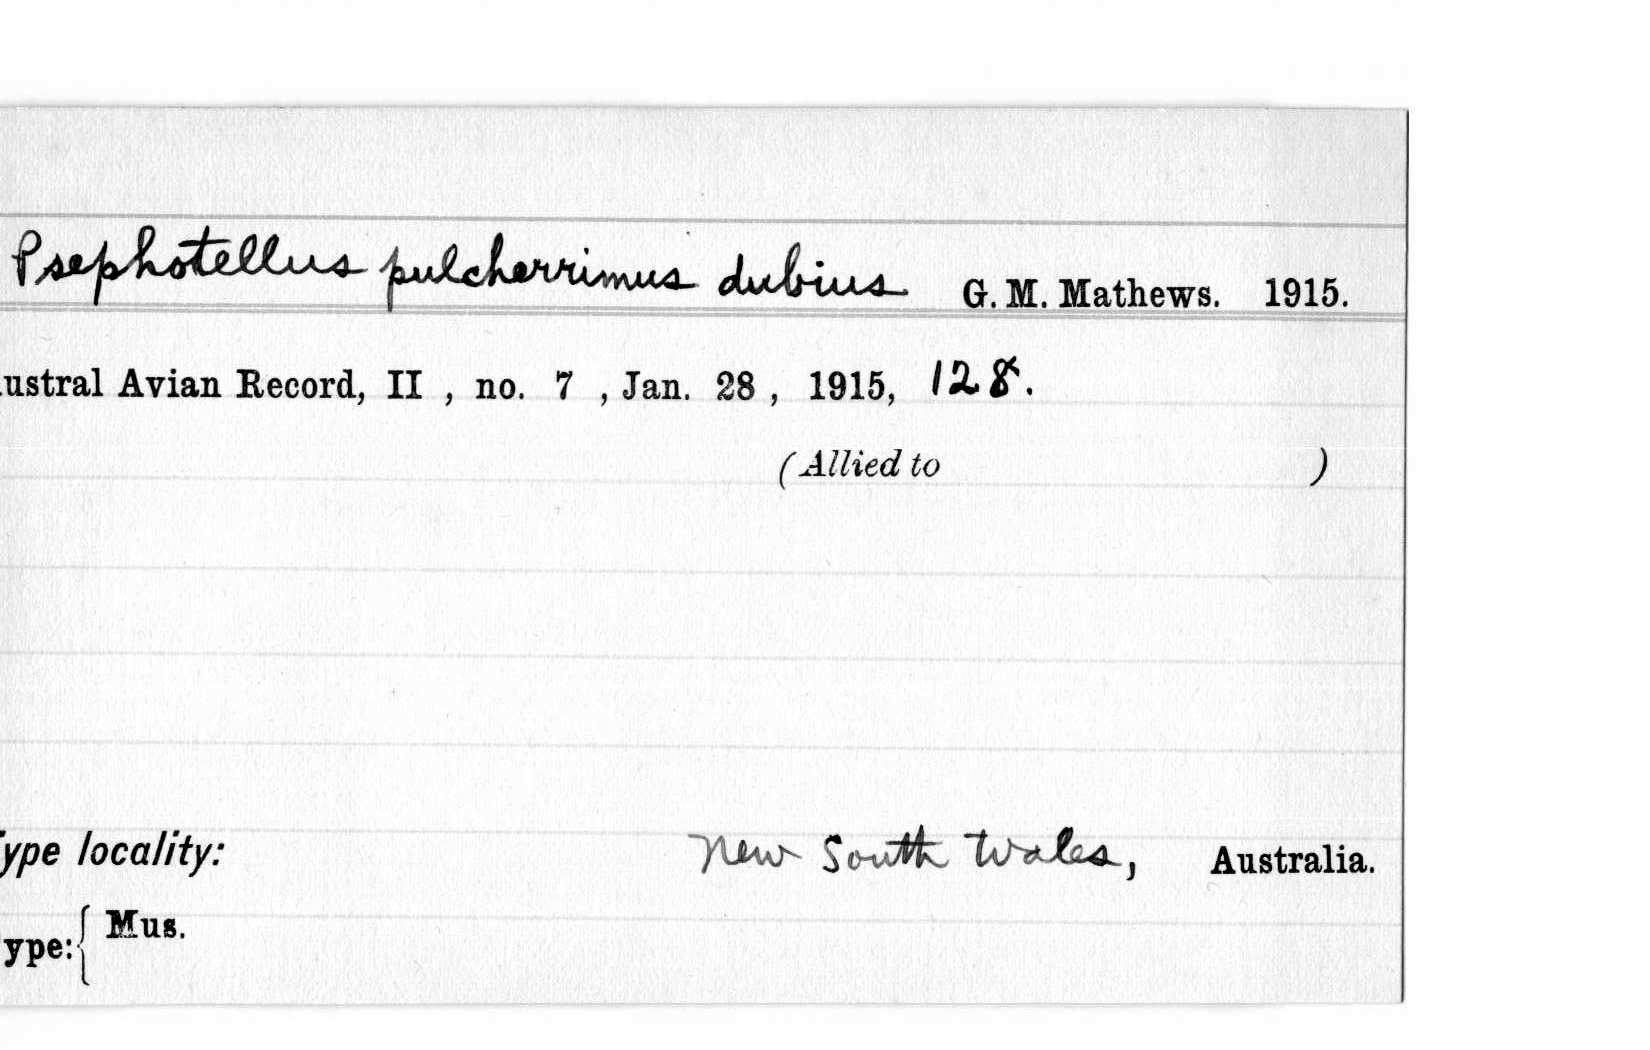 Psephotellus pulcherrimus dubius G. M. Mathews. 1915.
ustral Avian Record, II , no. 7 , Jan. 28 , 1915, 128.
(Allied to )
Type locality: New South Wales, Australia.
ype: { Mus.